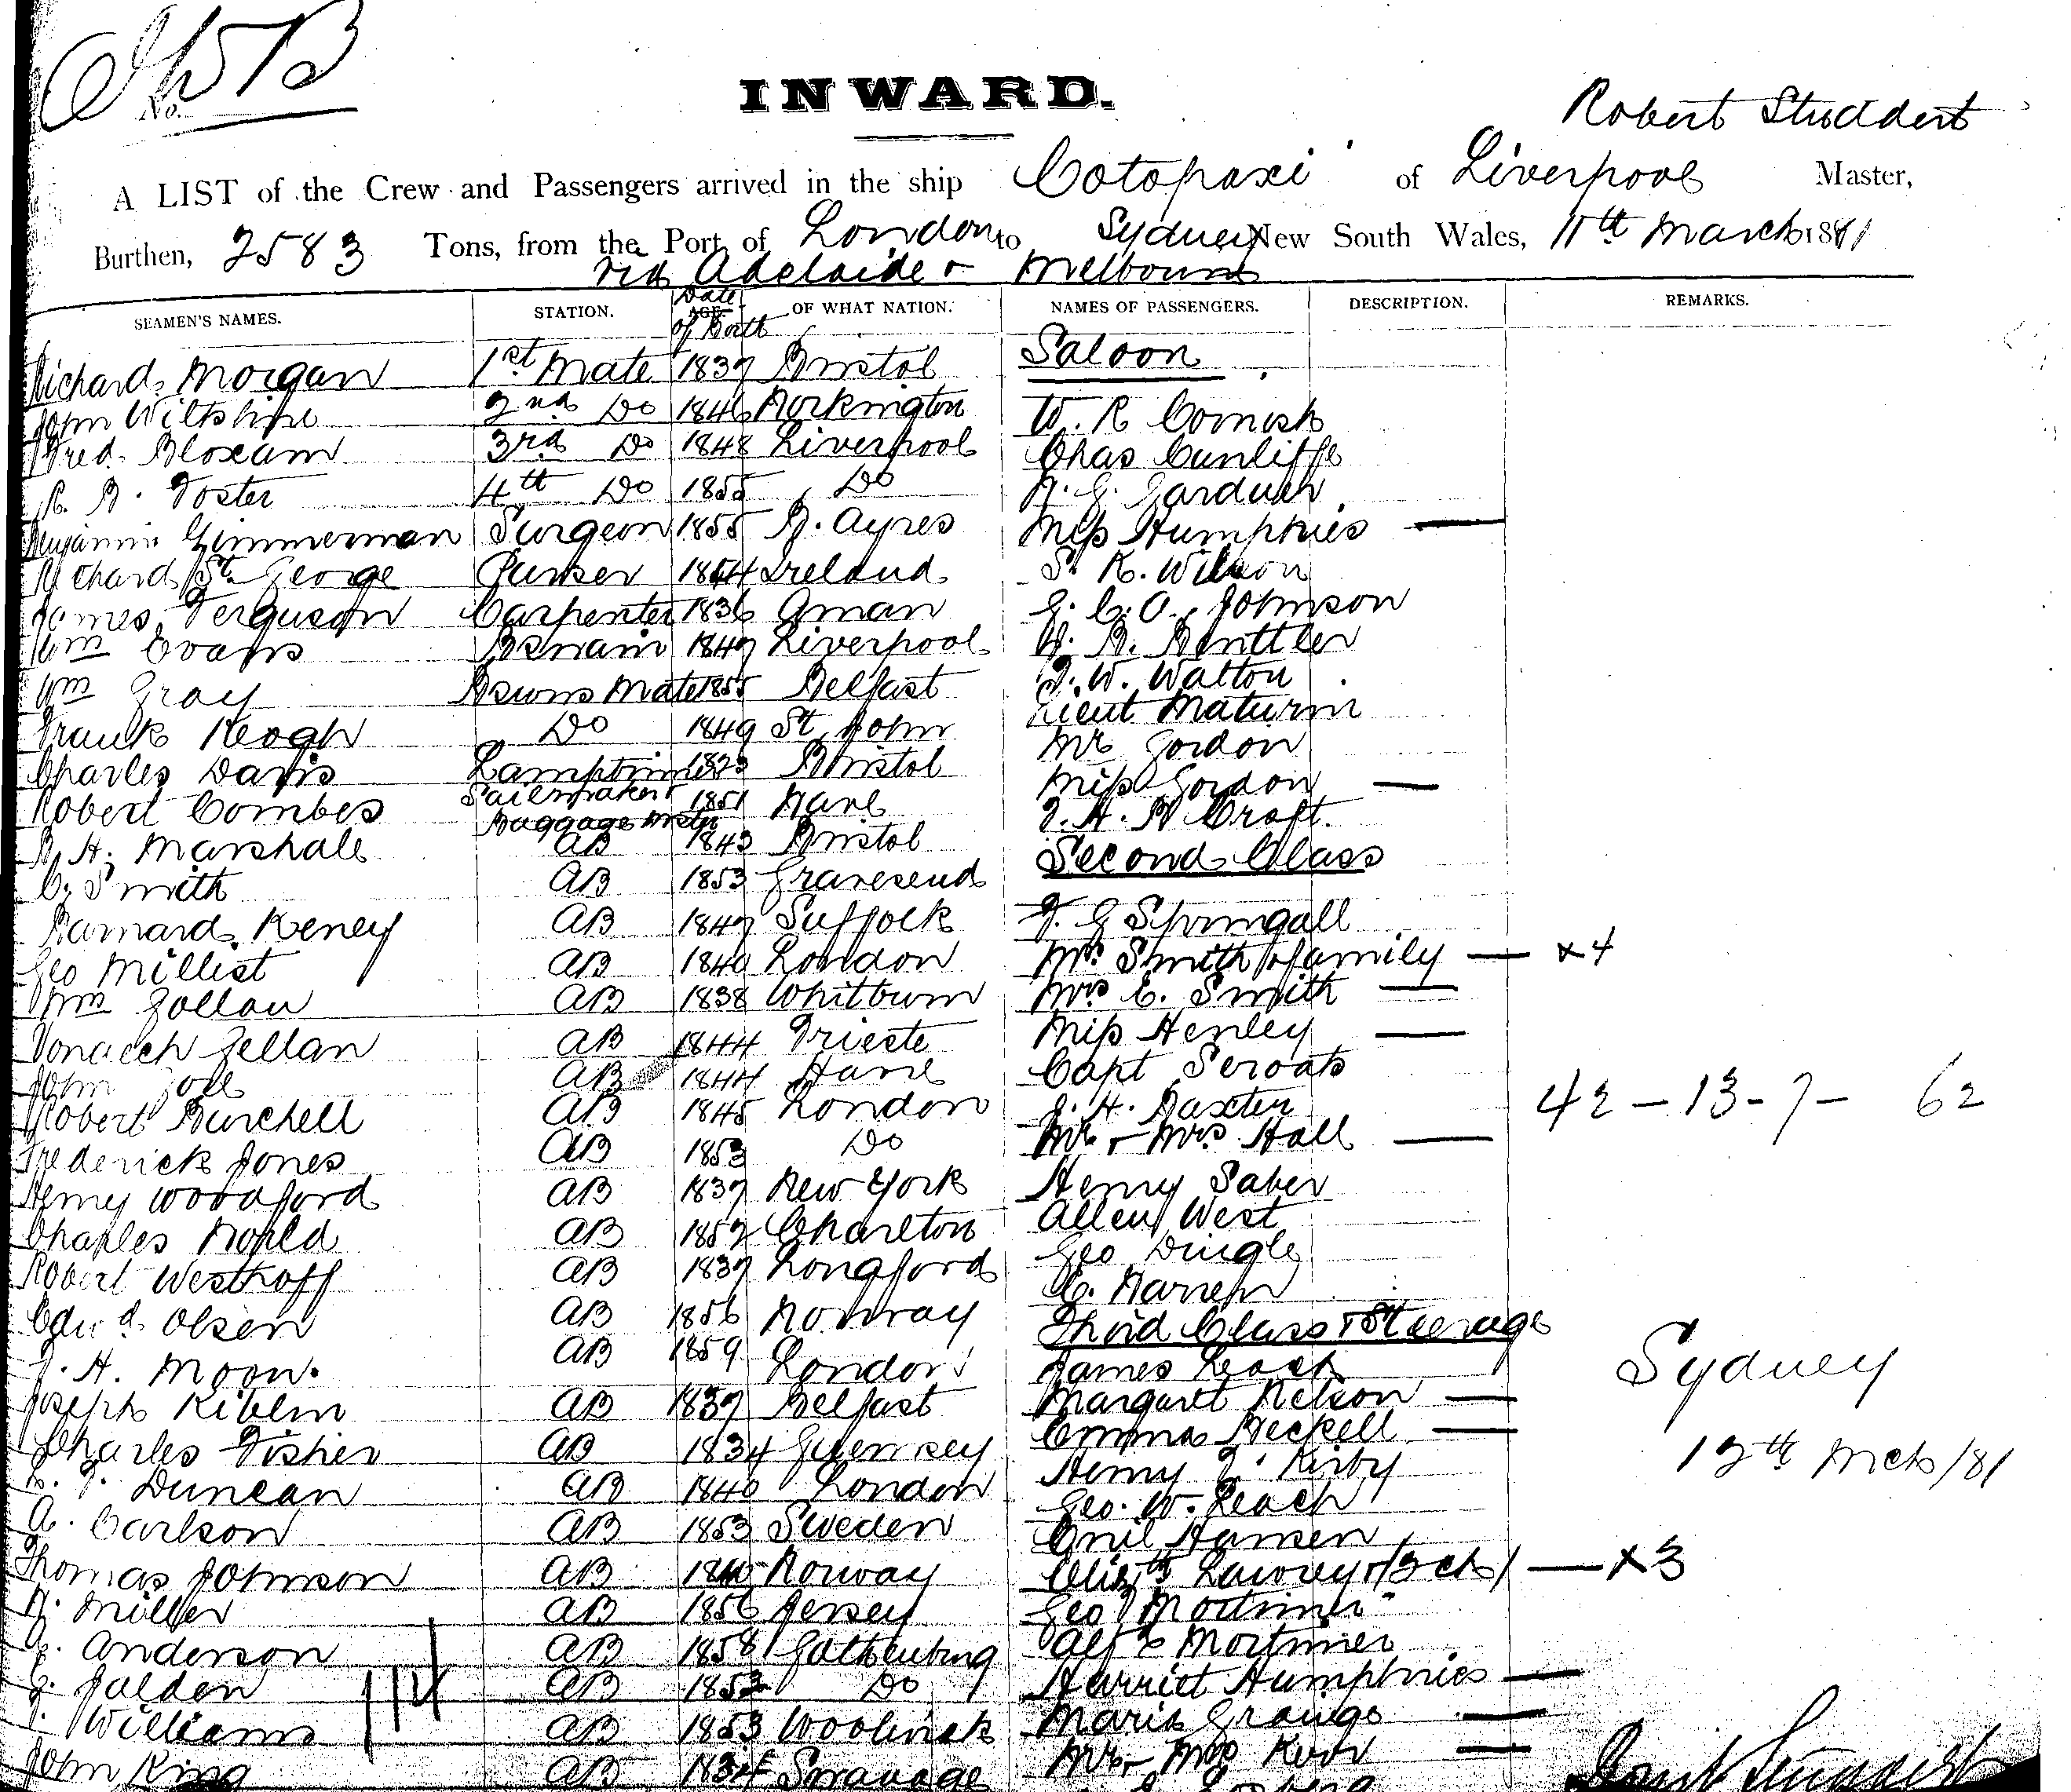 No.
INWARD.
Robert Studdert
A LIST of the Crew and Passengers arrived in the ship Cotopaxi of Liverpool Master,
Burthen, 2583 Tons, from the Port of London to Sydney New South Wales, 11th March 1881
via Adelaide & Melbourne
SEAMEN'S NAMES. STATION. Date of Birth AGE. OF WHAT NATION. NAMES OF PASSENGERS. DESCRIPTION. REMARKS.
Richard Morgan 1st Mate 1837 Bristol Saloon
John Wiltshire 2nd Do 1846 Workington W. R Cornish
Fred. Bloxam 3rd Do 1848 Liverpool Chas Cunliffe
R. B. Foster 4th Do 1855 Do Gardner
Benjamin Zimmerman Surgeon 1855 B. Ayres Miss Humphries —
Richard St. George Purser 1854 Ireland S. R. Wilson
James Ferguson Carpenter 1836 Oman E. C. O. Johnson
Wm Evans Bsmain 1847 Liverpool
Wm Gray Bsuns Mate 1855 Belfast J. W. Walton
Frank Keogh Do 1849 St John Lieut Maturin
Charles Davis Lamptrimer 1823 Bristol Mr Gordon
Robert Combes Sailmaker 1851 Miss Gordon —
Baggage Mstr Croft.
R. H. Marshall AB 1843 Bristol Second Class
C. Smith AB 1853 Gravesend
Barnard Keney AB 1847 Suffolk J. G Springall
Geo Millist AB 1840 London Mrs Smith & family — x4
Wm Gollan AB 1838 Whitburn Mrs E. Smith —
AB 1844 Trieste Miss Henley —
John AB 1844 Capt
Robert Burchell AB 1845 London J. H. Baxter 42 – 13 - 7 – 62
Frederick Jones AB 1853 Do Mr & Mrs Hall —
Henry Woodford AB 1837 New York Henry Saber
Charles AB 1852 Charlton Allen West
Robert Westhoff AB 1837 Longford Geo Dingle
Edwd Olsen AB 1856 Norway C. Warren
J. H. Moon. AB 1859 London Third Class & Steerage
James Leach Sydney
Joseph AB 1837 Belfast Margaret Nelson —
Charles Fisher AB 1834 Guernsey Emma Heckell —
Duncan AB 1840 London Henry J. Kirby 12th Mch/81
A. Carlson AB 1853 Sweden Geo. W. Leach
Emil Hansen
Thomas Johnson AB Norway Elizth Lawrey & (3 ch) — x3
Miller AB 1856 Jersey Geo Mortimer
Anderson AB 1858 Gothenburg Alfd Mortimer
Jalden AB 1853 Do Harriet Humphries —
Williams AB 1853 Woolwich Maria Grange —
John King AB Swanage Mr & Mrs —